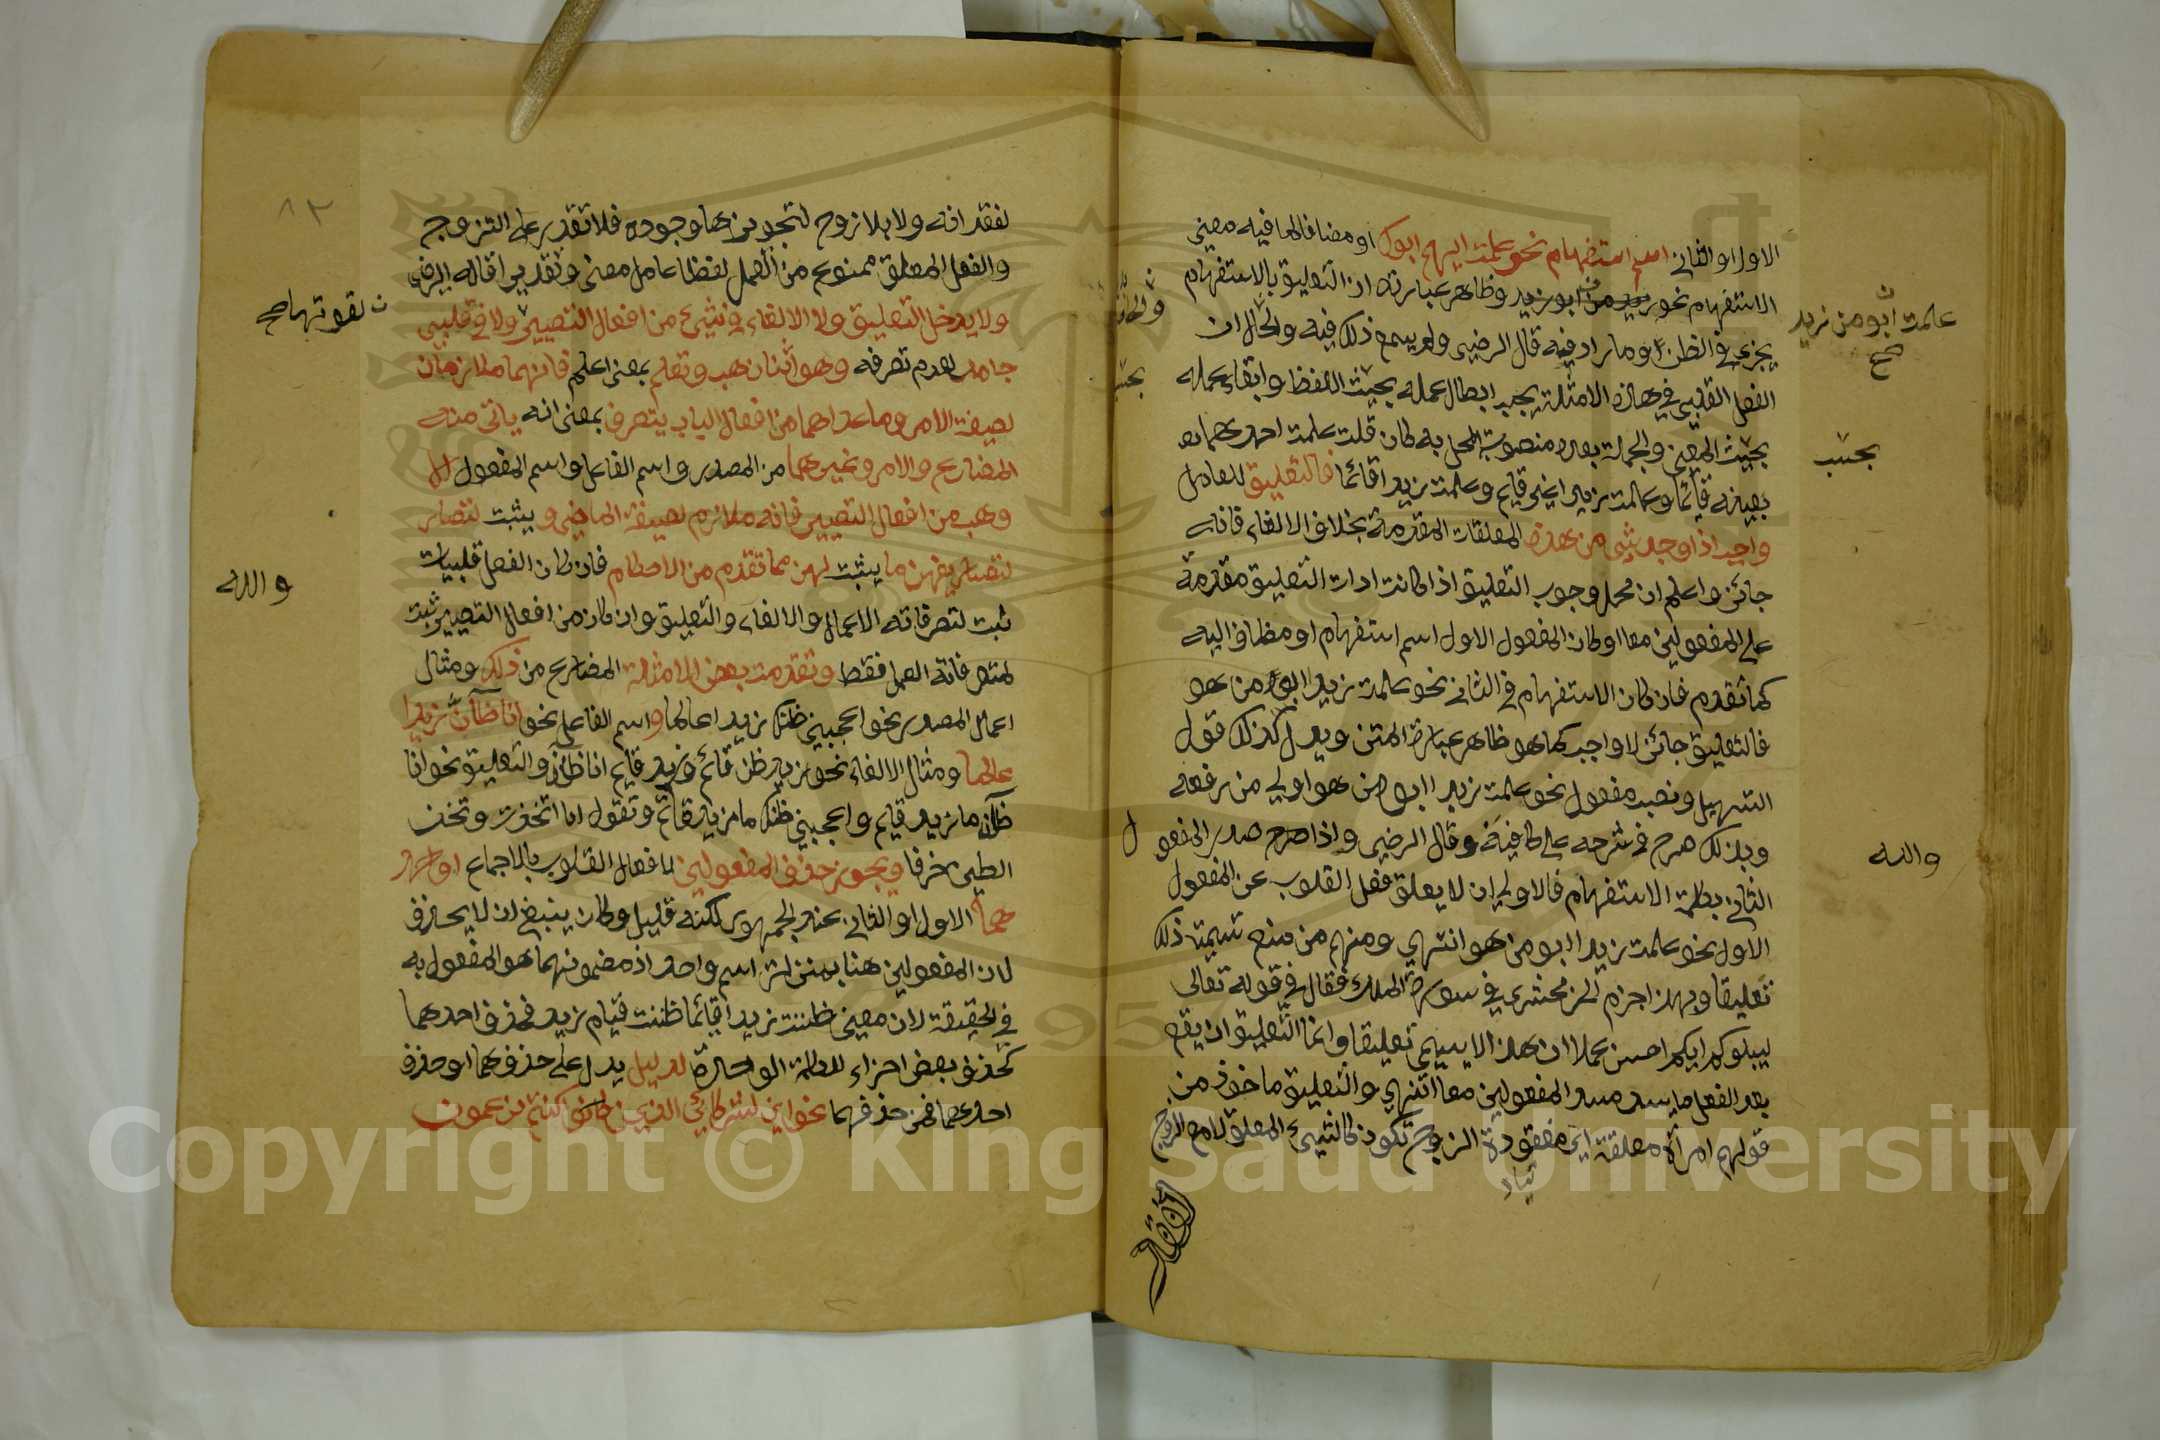 الاول او الثاني اسم استفهام نحو علمت ايهم ابوك او مضافا لما فيه معنى
الاستفهام نحو ابو زيد وظاهر عبارته ان التعليق بالاستفهام
علمت ابو من زيد
صح
يجري في الظن وما رادفه قال الرضي ولم يسمع ذلك فيه والحال ان
الفعل القلبي في هذه الامثلة يجب ابطال عمله بحيث اللفظ وابقاء عمله
بحيث المعنى والجملة بعده منصوبة المحل به كان قلت علمت احدهما
بحسب
بعينه قائما وعلمت زيدا قائما فالتعليق للعامل
واجب اذا وجد شي من هذه المعلقات المقدمة بخلاف الالغاء فانه
جائز واعلم ان محل وجوب التعليق اذا كانت ادات التعليق مقدمة
على المفعولين معا او كان المفعول الاول اسم استفهام او مظاف اليه
كما تقدم فان كان الاستفهام في الثاني نحو علمت زيدا ابو من هو
فالتعليق جائز لا واجب كما هو ظاهر عبارة المتن ويدل كذلك قول
التسهيل ونصب مفعول نحو علمت زيدا ابو من هو اولى من رفعه
وبذلك صرح في شرحه على كافية وقال الرضي واذا صدر المفعول
والله
الثاني بكلمة الاستفهام فالاولى ان لا يعلق فعل القلوب عن المفعول
الاول نحو علمت زيدا ابو من هو انتهى ومنهم من منع تسمية ذلك
تعليقا وبهذا جزم الزمخشري في سورة الملك فقال في قوله تعالى
ليبلوكم ايكم احسن عملا ان هذا لا يسمى تعليقا وانما التعليق ان يقع
بعد الفعل ما يسد مسد المفعولين معا انتهى والتعليق ماخوذ من
قولهم امرأة معلقة اي مفقودة الزوج تكون كالشيء المعلق لا مع الزوج
لفقدانه ولا بلا زوج لتجويزها وجوده فلا تقدر على التزوج
٨٢
والفعل المعلق ممنوع من العمل لفظا عامل معنى وتقديرا قاله الرضي
ولا يدخل التعليق ولا الالغاء في شيء من افعال التصيير ولا في قلبي
لقوتها صح
جامد لعدم تصرفه وهو اثنان هب وتعلم بمعنى اعلم فانهما ملازمان
لصيغة الامر وما عداهما من افعال الباب يتصرف بمعنى انه ياتي منه
المضارع والامر وغيرهما من المصدر واسم الفاعل واسم المفعول الا
وهب من افعال التصيير فانه ملازم لصيغة الماضي ويثبت لتصار
لتصاريفهن ما يثبت لهن مما تقدم من الاحكام فان كان الفعل قلبيا
والله
ثبت لتصرفاته الاعمال والالغاء والتعليق وان كان من افعال التصيير ثبت
لمتصرفاته العمل فقط وتقدمت بعض الامثلة المضارع من ذلك ومثال
اعمال المصدر نحو اعجبني ظنك زيدا عالما واسم الفاعل نحو انا ظانّ زيدا
عالما ومثال الالغاء نحو زيد ظن قائم وزيد قايم انا ظان والتعليق نحو انا
ظان ما زيد قايم واعجبني ظنك ما زيد قائم وتقول انا اتخذت وتخذ
الطين خزفا ويجوز حذف المفعولين لافعال القلوب بالاجماع او احد
هما الاول او الثاني عند الجمهور لكنه قليل وكان ينبغي ان لا يحذف
لان المفعولين هنا بمنزلة اسم واحد اذ مضمونهما هو المفعول به
في الحقيقة لان معنى ظننت زيدا قائما ظننت قيام زيد فحذف احدهما
كحذف بعض اجزاء الكلمة الواحدة لدليل يدل على حذفهما او حذف
احدهما فمن حذفهما نحو اين شركائي الذين كنتم تزعمون